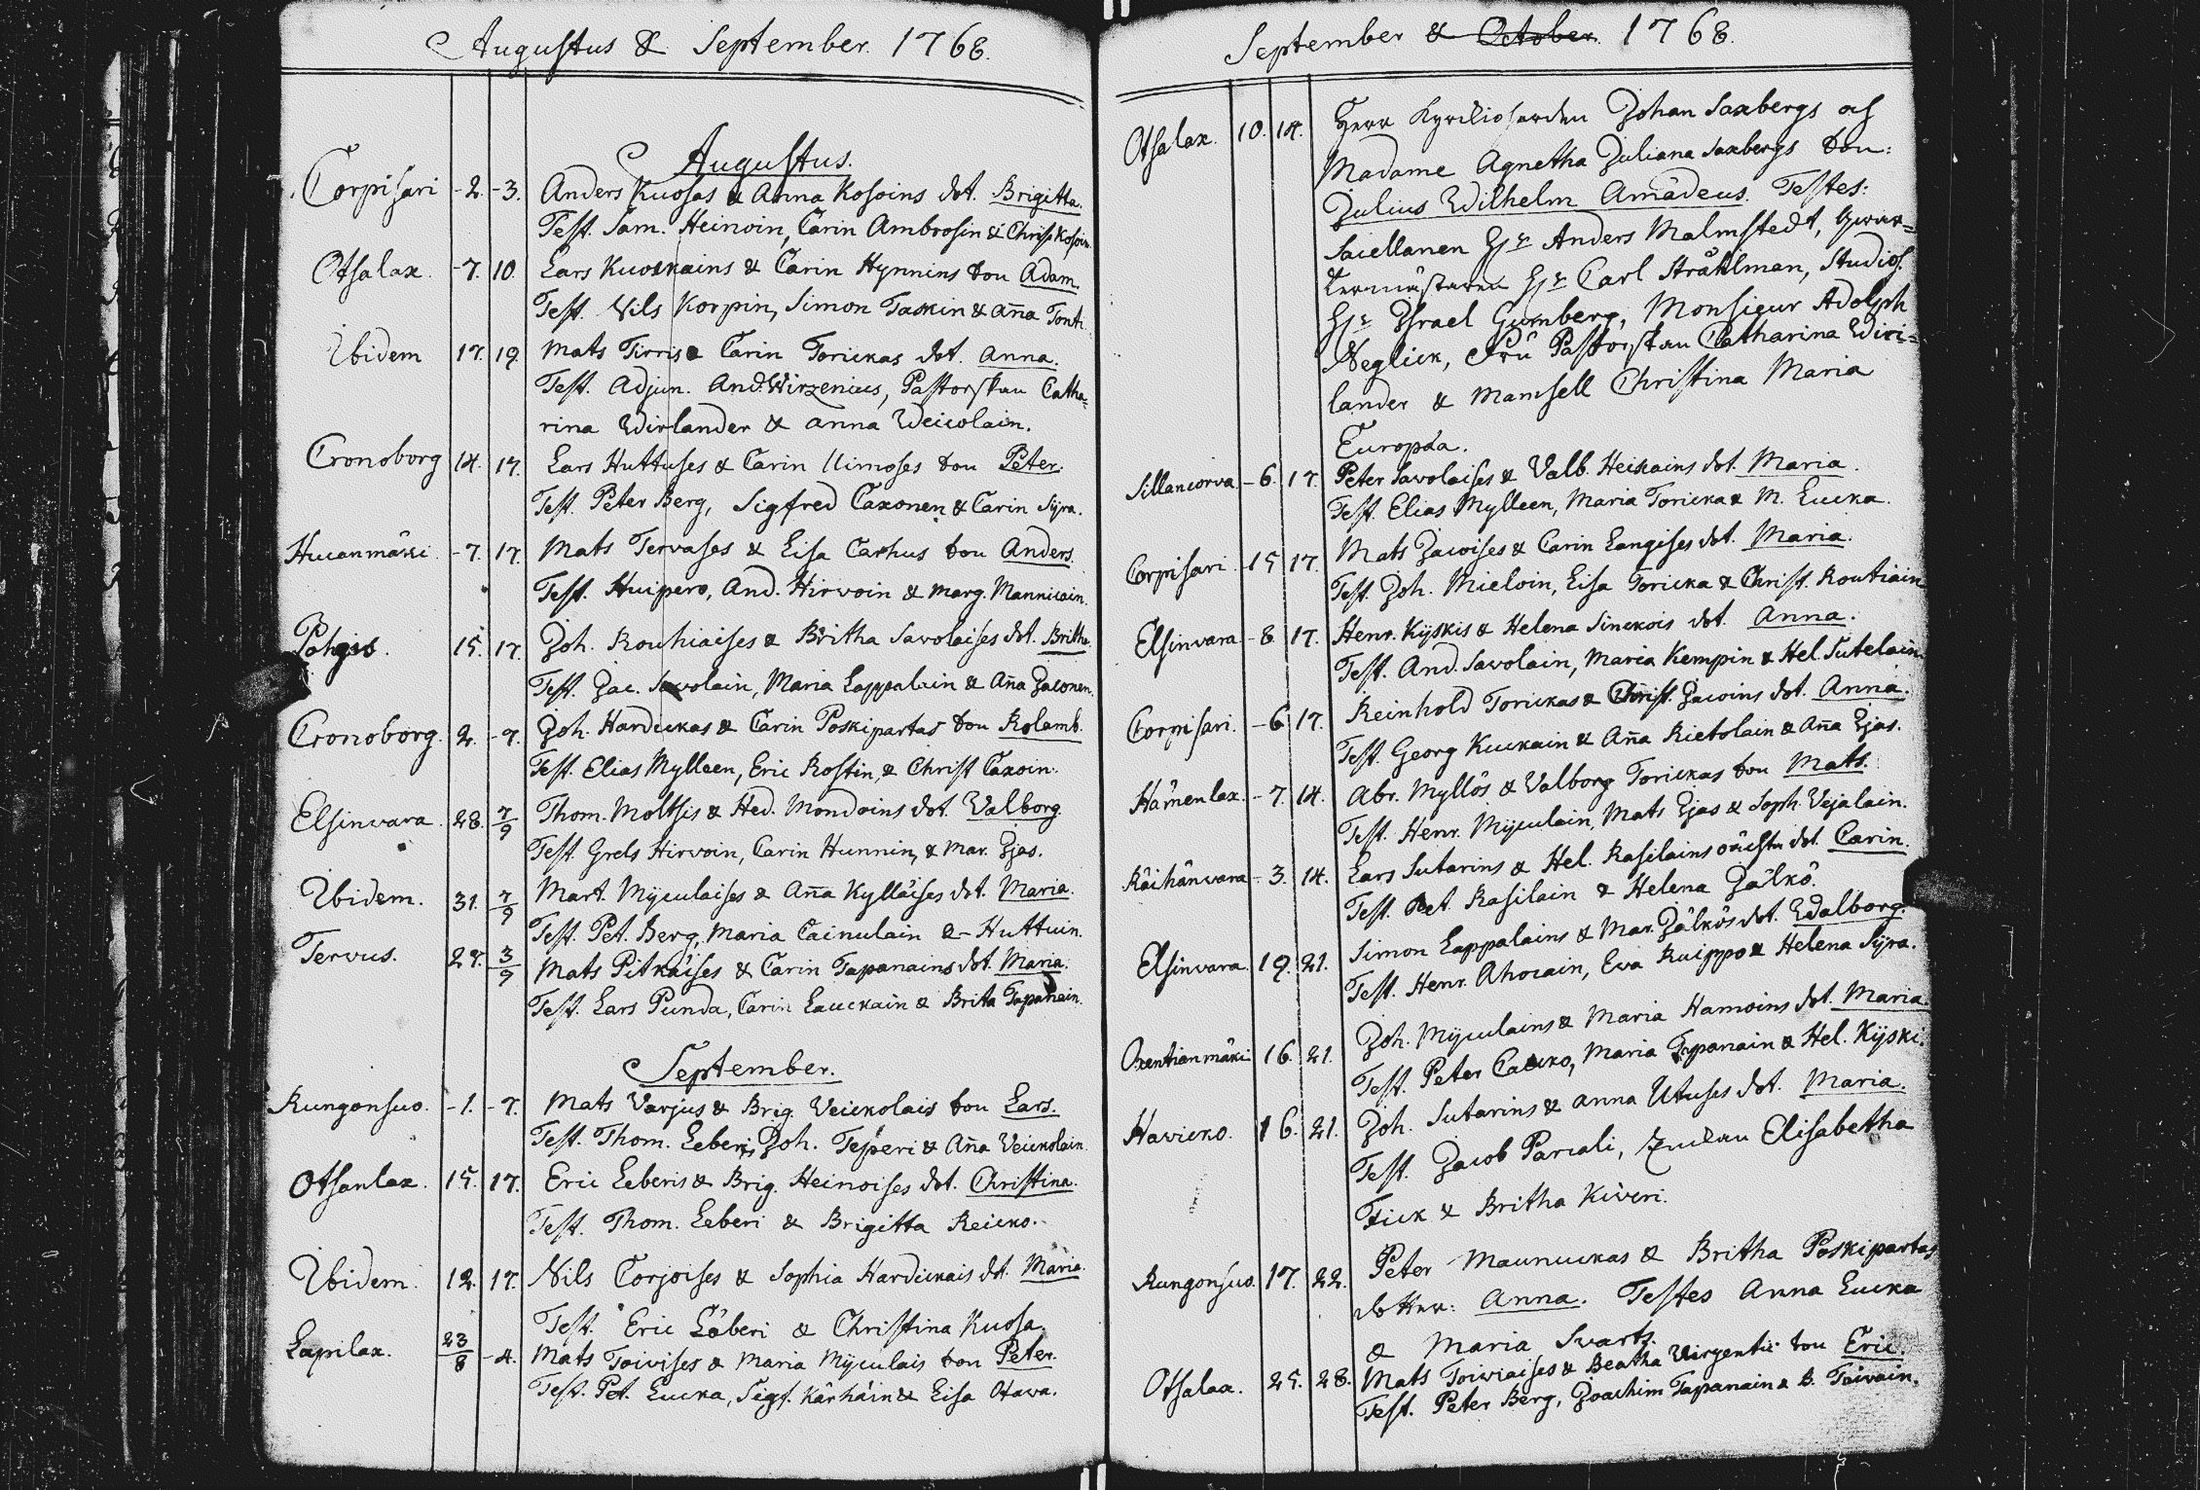 Augustus & September. 1768.
Augustus.
Corpisari -2. -3. Anders Kuosas & Anna Kosoins dot. Brigitta.
Test. Sam. Heinoin, Carin Ambrosin & Christ Kosoin.
Otsalax. -7. 10. Lars Kuoskains & Carin Hynnins son Adam.
Test. Nils Korpin, Simon Taskin & Aña Tont.
Ibidem 17. 19. Mats Tirris & Carin Torickas dot. Anna.
Test. Adjun. And. Wirzenius, Pastorskan Catha=
rina Wirlander & Anna Weicolain.
Cronoborg 14. 17. Lars Huttuses & Carin Uimoses son Peter.
Test. Peter Berg, Sigfred Caxonen & Carin Syra.
-7. 17. Mats Tervases & Lisa Carhus son Anders.
Test. Huipero, And. Hirvoin & Marg. Mannicain.
15. 17. Joh. Rouhiaises & Britha Savolaises dot. Britha
Test. Jac. Savolain, Maria Lappalain & Aña Jaconen.
Cronoborg. 2. -7. Joh. Hardickas & Carin Poskipartas son Rolamb.
Test. Elias Mylleen, Eric Rostin, & Christ Caxoin.
Elsinvara. 28. 7/9 Thom. Moltsis & Hed. Mondoins dot. Valborg.
Test. Grels Hirvoin, Carin Hunnin, & Mar. Ijas.
Ibidem. 31. 7/9 Mart. Myculaises & Aña Kylläises dot. Maria.
Test. Pet. Berg, Maria Cainulain & - Huttuin.
Tervus. 27. 3/9 Mats Pitkäises & Carin Tapanains dot. Maria.
Test. Lars Punda, Carin Lauckain & Brita Tapanain.
September.
Kungonsuo. -1. -7. Mats Varjus & Brig. Veickolais son Lars.
Test. Thom. Leberi, Joh. Tesperi & Aña Veickolain.
Otsanlax. 15. 17. Eric Leberis & Brig. Heinoises dot. Christina.
Test. Thom. Leberi & Brigitta Reicko.
Ibidem. 12. 17. Nils Corjoises & Sophia Hardickais dot. Maria.
Test. Eric Läberi & Christina Kuosa.
Lapilax. 23/8 -4. Mats Toivises & Maria Myculais son Peter.
Test. Pet. Lucka, Sigf. Kärhäin & Lisa Otava.
September & October. 1768.
Otsalax. 10. 14. Herr Johan Saxbergs och
Madame Agnetha Juliana Saxbergs son:
Julius Wilhelm Amadeus. Testes:
Hr Anders Malmstedt, Qwar=
termästaren Hr Carl Stråhlman, Studios.
Hr Israel Gumberg, Monsieur Adolph
Neglick, Fru Pastorskan Catharina Wiri=
lander & Mamsell Christina Maria
Europæa.
Sillancorva. -6. 17. Peter Savolaises & Valb. Heikains dot. Maria.
Test. Elias Mylleen, Maria Toricka & M. Lucka.
Corpisari. 15 17. Mats Jacoises & Carin Langises dot. Maria.
Test. Joh. Mieloin, Lisa Toricka & Christ. Routiain
Elsinvara -8 17. Henr. Kyskis & Helena Sinckois dot. Anna.
Test. And. Savolain, Maria Kempin & Hel. Sutelain.
Corpisari. -6 17. Reinhold Torickas & Christ. Jacoins dot. Anna.
Test. Georg Kuckain & Aña Rietolain & Aña Ijas.
Hämenlax. -7. 14. Abr. Myllös & Valborg Torickas son Mats.
Test. Henr. Myculain, Mats Ijas & Soph. Vejalain.
Räihänvara -3. 14. Lars Sutarins & Hel. Rasilains oächta dot. Carin.
Test. Pet. Rasilain & Helena Jälkö.
Elsinvara 19. 21. Simon Lappalains & Mar. Jälkös dot. Walborg.
Test. Henr. Ahocain, Eva Ruippo & Helena Syra.
Oxentianmäki 16. 21. Joh. Myculains & Maria Hamoins dot. Maria.
Test. Peter Caucko, Maria Tapanain & Hel. Kyski.
Havicko. 16. 21. Joh. Sutarins & Anna Utuses dot. Maria.
Test. Jacob Parcali, Elisabetha
Fick & Britha Kiveri.
Kungonsuo. 17. 22. Peter Maunuckas & Britha Poskipartas
dotter: Anna. Testes Anna Lucka
& Maria Svarts.
Otsalax. 25. 28. Mats Toiviaises & Beatha Virgentii son Eric.
Test. Peter Berg, Joachim Tapanain & B. Toivain.